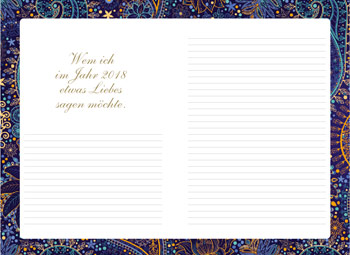 Wem ich
im Jahr 2018
etwas Liebes
sagen möchte.